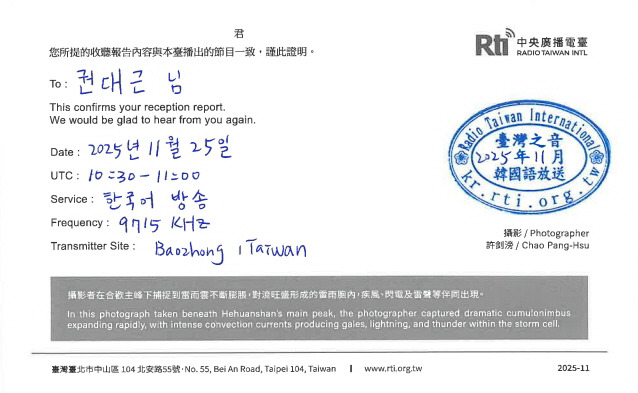 君
您所提的收聽報告內容與本臺播出的節目一致，謹此證明。
Rti 中央廣播電臺
RADIO TAIWAN INTL
To : 권대근 님
This confirms your reception report.
We would be glad to hear from you again.
Date : 2025년 11월 25일
UTC : 10:30 - 11:00
Service : 한국어 방송
Frequency : 9715 KHz
Transmitter Site : Baozhong, Taiwan
Radio Taiwan International
臺灣之音
2025年11月
韓國語放送
kr.rti.org.tw
攝影 / Photographer
許釗滂 / Chao Pang-Hsu
攝影者在合歡主峰下捕捉到雷雨雲不斷膨脹，對流旺盛形成的雷雨胞內，疾風、閃電及雷聲等伴同出現。
In this photograph taken beneath Hehuanshan's main peak, the photographer captured dramatic cumulonimbus
expanding rapidly, with intense convection currents producing gales, lightning, and thunder within the storm cell.
臺灣臺北市中山區 104 北安路55號 · No. 55, Bei An Road, Taipei 104, Taiwan | www.rti.org.tw
2025-11